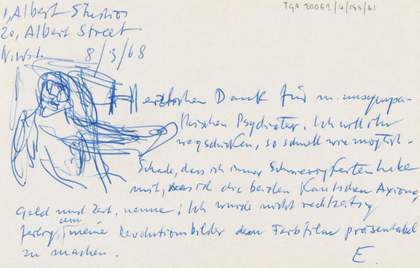 TGA 20062/4/
1, Albert Studios
20, Albert Street
8/3/68
Herzlichen Dank für m. unsympa-
thischen Psychiater. Ich will ihn
wegschicken, so schnell wie möglich.
Schade, dass ich immer Schwierigkeiten habe
mit, dass ich die beiden Kantschen Axiome,
Geld und Zeit, nenne: Ich wurde nicht rechtzeitig
fertig, um meine Revolutionsbilder dem Farbfilm präsentabel
zu machen.
E.